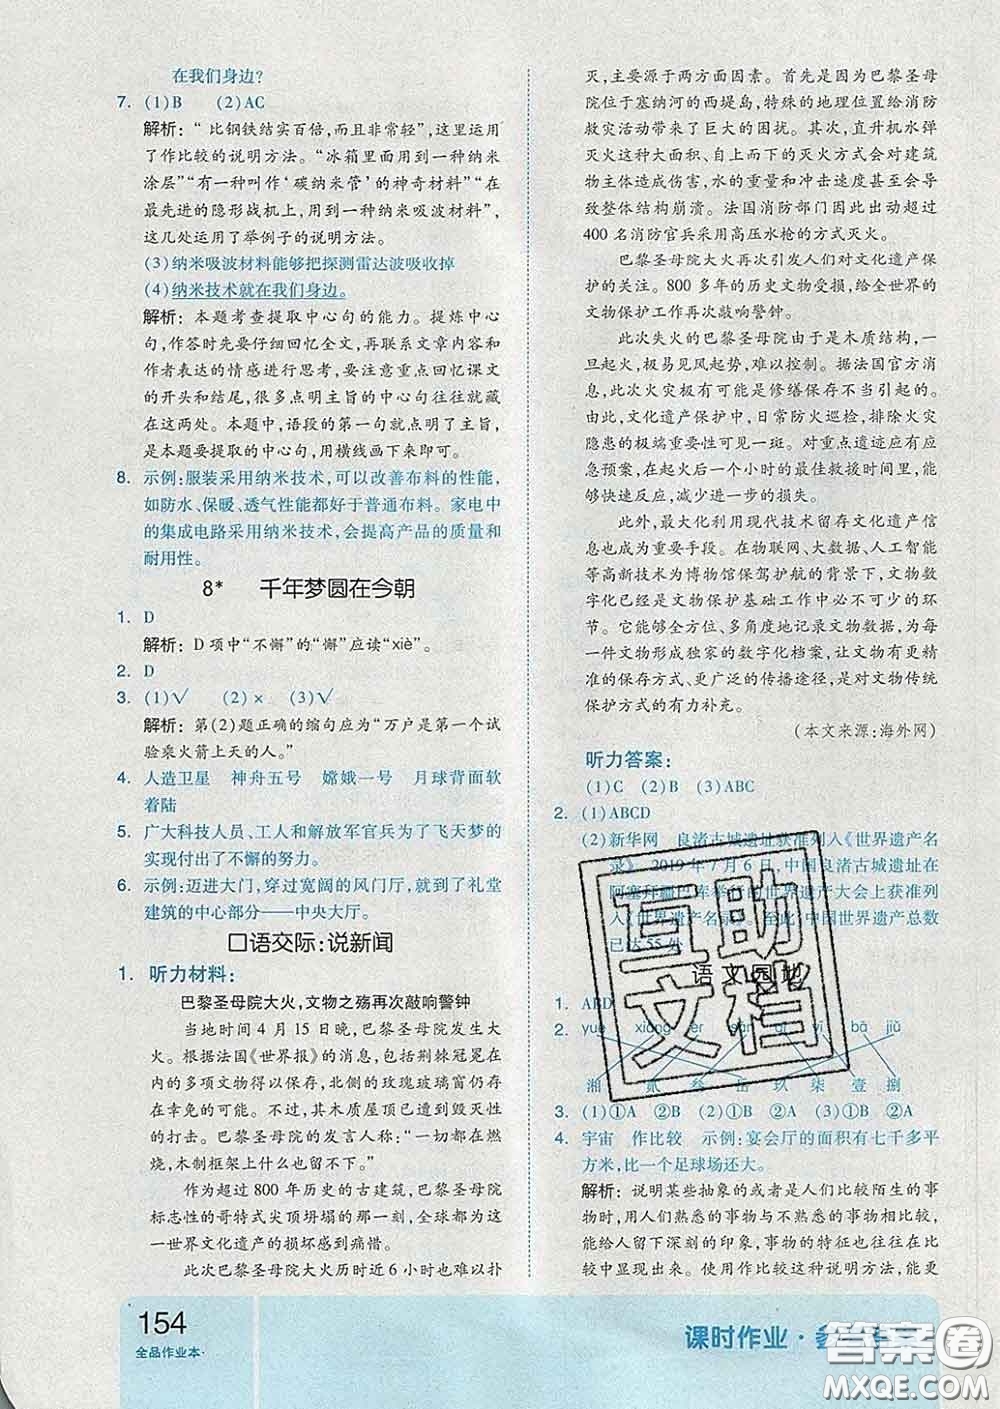 在我们身边?
7. (1)B (2)AC
解析:“比钢铁结实百倍,而且非常轻”,这里运用
了作比较的说明方法。“冰箱里面用到一种纳米
涂层”“有一种叫作‘碳纳米管’的神奇材料”“在
最先进的隐形战机上,用到一种纳米吸波材料”,
这几处运用了举例子的说明方法。
(3)纳米吸波材料能够把探测雷达波吸收掉
(4)纳米技术就在我们身边。
解析:本题考查提取中心句的能力。提炼中心
句,作答时先要仔细回忆全文,再联系文章内容和
作者表达的情感进行思考,要注意重点回忆课文
的开头和结尾,很多点明主旨的中心句往往就藏
在这两处。本题中,语段的第一句就点明了主旨,
是本题要提取的中心句,用横线画下来即可。
8. 示例:服装采用纳米技术,可以改善布料的性能,
如防水、保暖、透气性能都好于普通布料。家电中
的集成电路采用纳米技术,会提高产品的质量和
耐用性。
8* 千年梦圆在今朝
1. D
解析:D项中“不懈”的“懈”应读“xiè”。
2. D
3. (1)√ (2)× (3)√
解析:第(2)题正确的缩句应为“万户是第一个试
验乘火箭上天的人。”
4. 人造卫星 神舟五号 嫦娥一号 月球背面软
着陆
5. 广大科技人员、工人和解放军官兵为了飞天梦的
实现付出了不懈的努力。
6. 示例:迈进大门,穿过宽阔的风门厅,就到了礼堂
建筑的中心部分——中央大厅。
口语交际:说新闻
1. 听力材料:
巴黎圣母院大火,文物之殇再次敲响警钟
当地时间4月15日晚,巴黎圣母院发生大
火。根据法国《世界报》的消息,包括荆棘冠冕在
内的多项文物得以保存,北侧的玫瑰玻璃窗仍存
在幸免的可能。不过,其木质屋顶已受到毁灭性
的打击。巴黎圣母院的发言人称:“一切都在燃
烧,木制框架上什么也留不下。”
作为超过800年历史的古建筑,巴黎圣母院
标志性的哥特式尖顶坍塌的那一刻,全球都为这
一世界文化遗产的损坏感到痛惜。
此次巴黎圣母院大火历时近6小时也难以扑
灭,主要源于两方面因素。首先是因为巴黎圣母
院位于塞纳河的西堤岛,特殊的地理位置给消防
救灾活动带来了巨大的困扰。其次,直升机水弹
灭火这种大范围、自上而下的灭火方式会对建筑
物主体造成伤害,水的重量和冲击速度甚至会导
致整体结构崩溃。法国消防部门因此出动超过
400名消防官兵采用高压水枪的方式灭火。
巴黎圣母院大火再次引发人们对文化遗产保
护的关注。800多年的历史文物受损,给全世界的
文物保护工作再次敲响警钟。
此次失火的巴黎圣母院由于是木质结构,一
旦起火,极易见风起势,难以控制。据法国官方消
息,此次火灾极有可能是修缮保存不当引起的。
由此,文化遗产保护中,日常防火巡检,排除火灾
隐患的极端重要性可见一斑。对重点遗迹应有应
急预案,在起火后一个小时的最佳救援时间里,能
够快速反应,减少进一步的损失。
此外,最大化利用现代技术留存文化遗产信
息也成为重要手段。在物联网、大数据、人工智能
等高新技术为博物馆保驾护航的背景下,文物数
字化已经是文物保护基础工作中必不可少的环
节。它能够全方位、多角度地记录文物数据,为每
一件文物形成独家的数字化档案,让文物有更精
准的保存方式、更广泛的传播途径,是对文物传统
保护方式的有力补充。
(本文来源:海外网)
听力答案:
(1)C (2)B (3)ABC
2. (1)ABCD
(2)新华网 良渚古城遗址获准列入《世界遗产名
录》 2019年7月6日,中国良渚古城遗址在
阿塞拜疆巴库举行的世界遗产大会上获准列
入《世界遗产名录》。至此,中国世界遗产总数
已达55处
语文园地
1. ABD
2. yuè xiāng èr sān qī yī bā jiǔ
湘 贰 叁 岳 玖 柒 壹 捌
3. (1)①A ②B (2)①B ②A (3)①B ②A
4. 宇宙 作比较 示例:宴会厅的面积有七千多平
方米,比一个足球场还大。
解析:说明某些抽象的或者是人们比较陌生的事
物时,用人们熟悉的事物与不熟悉的事物相比较,
能给人留下深刻的印象,事物的特征也往往在比
较中显现出来。使用作比较这种说明方法,能更
154
全品作业本·
课时作业·参
答案圈
MXQE.COM
互助
文档